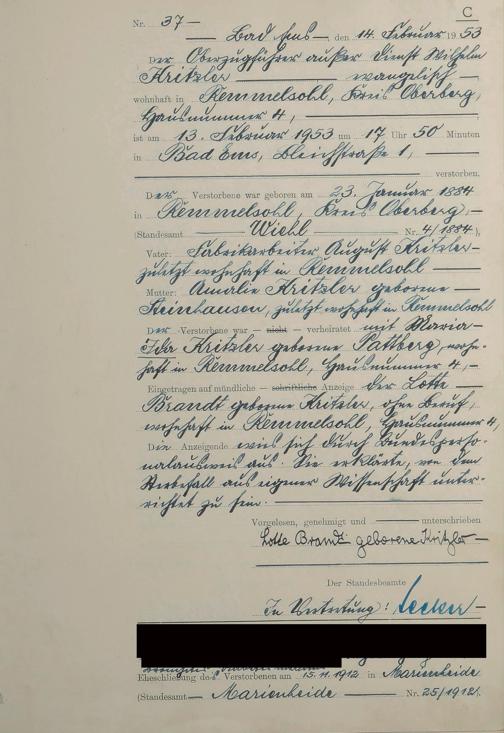 C
Nr. 37
Bad Ems, den 14. Februar 1953
Der Oberzugführer außer Dienst Wilhelm
Kritzler evangelisch,
wohnhaft in Remmelsohl, Kreis Oberberg,
Hausnummer 4,
ist am 13. Februar 1953 um 17 Uhr 50 Minuten
in Bad Ems, Bleichstraße 1,
verstorben.
Der Verstorbene war geboren am 23. Januar 1884
in Remmelsohl, Kreis Oberberg,
(Standesamt Wiehl Nr. 4/1884),
Vater: Fabrikarbeiter August Kritzler
zuletzt wohnhaft in Remmelsohl
Mutter: Amalie Kritzler geborene
Steinhausen, zuletzt wohnhaft in Remmelsohl
Der Verstorbene war — nicht — verheiratet mit Maria
Ida Kritzler geborene Pattberg, wohn-
haft in Remmelsohl, Hausnummer 4,
Eingetragen auf mündliche — schriftliche Anzeige der Lotte
Brandt geborene Kritzler, ohne Beruf,
wohnhaft in Remmelsohl, Hausnummer 4,
Die Anzeigende wies sich durch Bundesperso-
nalausweis aus. Sie erklärte, von dem
Sterbefall aus eigener Wissenschaft unter-
richtet zu sein.
Vorgelesen, genehmigt und unterschrieben
Lotte Brandt geborene Kritzler
Der Standesbeamte
In Vertretung:
Eheschließung des Verstorbenen am 15.11.1912 in Marienheide
(Standesamt Marienheide Nr. 25/1912).